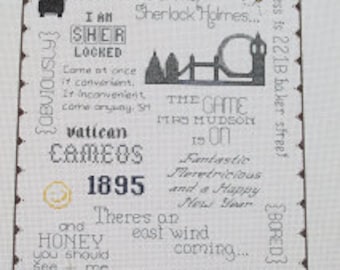 Sherlock Holmes...
I AM
SHER
LOCKED
{OBVIOUSLY}
Come at once
if convenient.
If inconvenient,
come anyway. SH
is 221B Baker street
THE GAME
MRS HUDSON
IS ON
vatican
CAMEOS
Fantastic
Meretricious
and a Happy
New Year
1895
There's an
east wind
coming...
{BORED}
and
HONEY
you should
see me